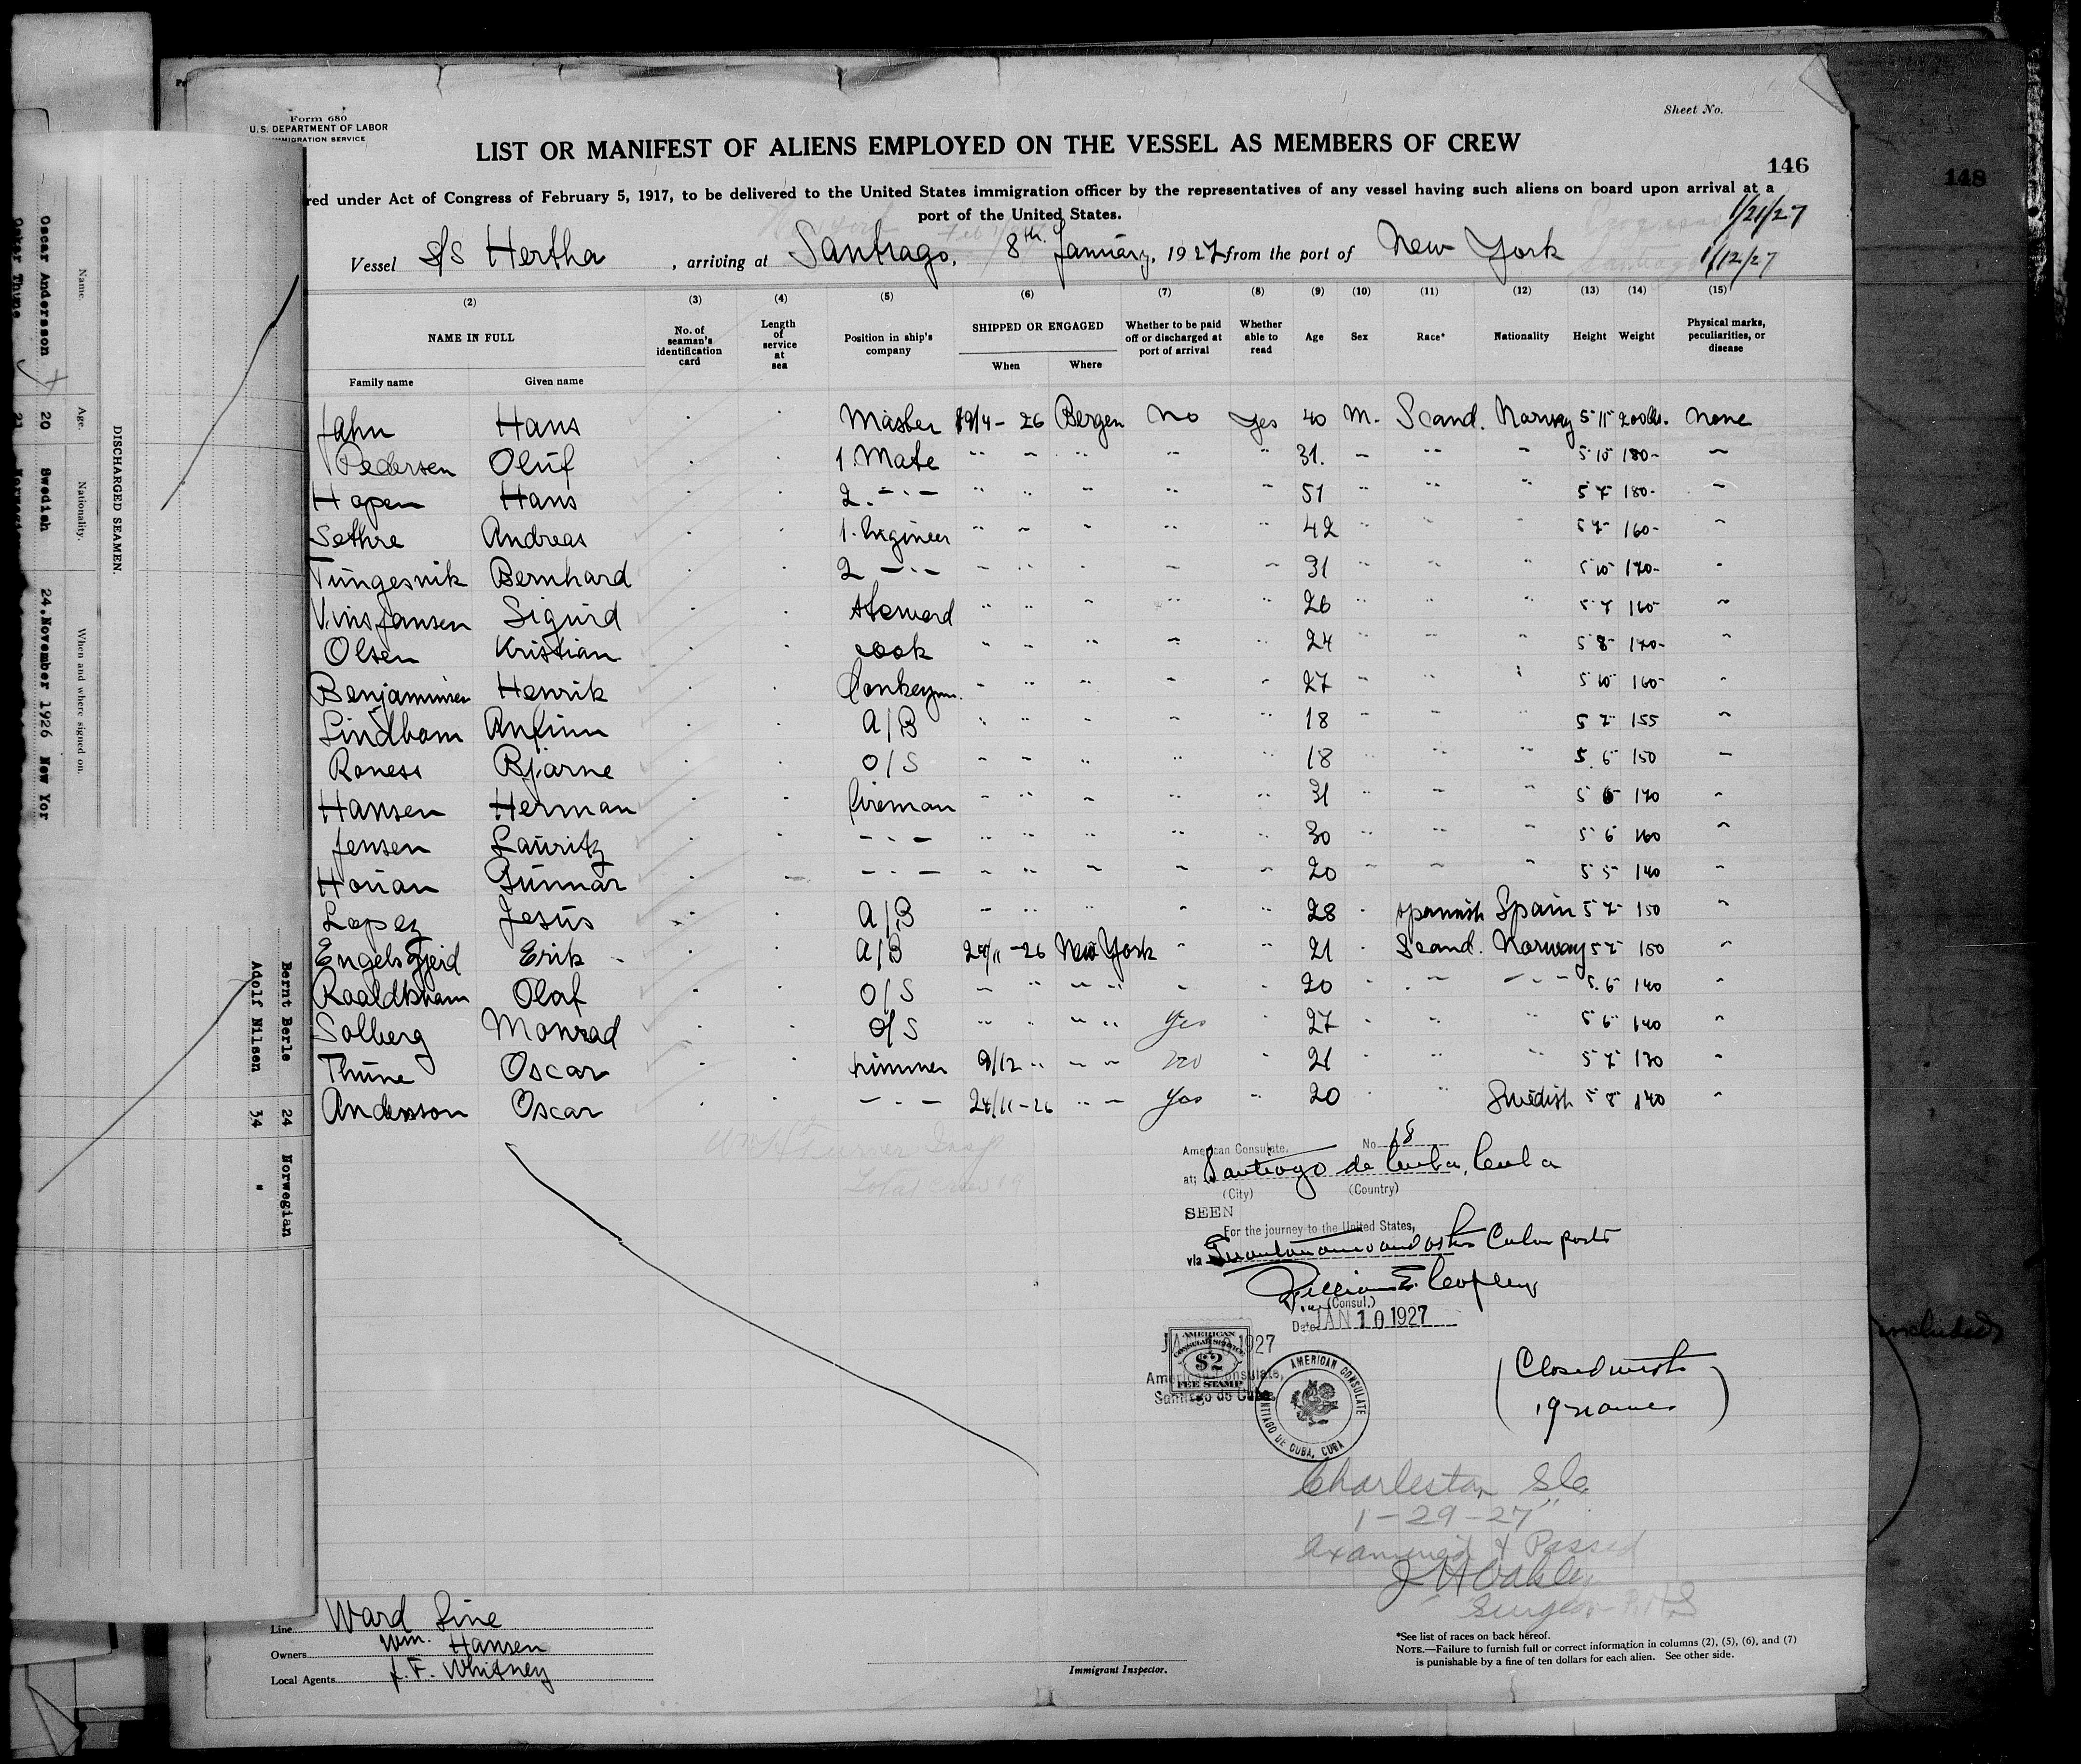 Form 680
U.S. DEPARTMENT OF LABOR
IMMIGRATION SERVICE
Sheet No.
LIST OR MANIFEST OF ALIENS EMPLOYED ON THE VESSEL AS MEMBERS OF CREW
146
148
red under Act of Congress of February 5, 1917, to be delivered to the United States immigration officer by the representatives of any vessel having such aliens on board upon arrival at a
port of the United States.
1/21/27
Vessel S/S Hertha, arriving at Santiago, 8th January, 1927 from the port of New York
1/12/27
(2) (3) (4) (5) (6) (7) (8) (9) (10) (11) (12) (13) (14) (15)
NAME IN FULL
Family name Given name
No. of seaman's identification card
Length of service at sea
Position in ship's company
SHIPPED OR ENGAGED
When Where
Whether to be paid off or discharged at port of arrival
Whether able to read
Age Sex Race* Nationality Height Weight
Physical marks, peculiarities, or disease
Jahn Hans Master 19/4 - 26 Bergen No Yes 40 M. Scand. Norway 5 11 200 lbs. None
Pedersen Oluf 1. Mate " - " " " 31. - " " 5 10 180 - "
Hopen Hans 2. - " - " " " " " 51 " " " 5 7 180 - "
Sethre Andreas 1. Engineer " " " " " 42 " " " 5 7 160 - "
Tungesvik Bernhard 2 - " - " " " " " 31 " " " 5 10 170 - "
Vinsjansen Sigurd Steward " " " " " 26 " " " 5 7 160 "
Olsen Kristian cook " " " " " 24 " " " 5 8 170 - "
Benjaminsen Henrik Donkeym. " " " " " 27 " " " 5 10 160 "
Lindham Anfinn A/B " " " " " 18 " " " 5 7 155 "
Roness Bjarne O/S " " " " " 18 " " " 5 6 150 "
Hansen Herman fireman " " " " " 31 " " " 5 6 170 "
Jensen Lauritz - " - " " " " " 30 " " " 5 6 160 "
Gunnar - " - " " " " " 20 " " " 5 5 140 "
Lopez Jesus A/B " " " " " 28 " Spannish Spain 5 7 150 "
Erik A/B 24/11 - 26 New York " " 21 " Scand. Norway 5 7 150 "
Olaf O/S " " " " " 20 " " " 5 6 140 "
Solberg Monrad O/S " " " " Yes " 27 " " " 5 6 140 "
Thune Oscar trimmer 9/12 " " " no " 21 " " " 5 7 130 "
Andersson Oscar - " - 24/11 - 26 " " Yes " 20 " " Swedish 5 8 140 "
Total crew 19
American Consulate, No. 18
at; Santiago de Cuba, Cuba
(City) (Country)
SEEN
For the journey to the United States,
via Guantanamo and other Cuban ports
(Consul.)
Date JAN 10 1927
JAN 10 1927
AMERICAN
CONSULAR SERVICE
$2
FEE STAMP
American Consulate,
Santiago de Cuba
AMERICAN CONSULATE
SANTIAGO DE CUBA, CUBA
(Closed with
19 names)
included
Charleston S.C.
1-29-27
Examined & Passed
J H Oakley
Surgeon
Line Ward Line
Owners Wm. Hansen
Local Agents J. F. Whitney
Immigrant Inspector.
*See list of races on back hereof.
NOTE.—Failure to furnish full or correct information in columns (2), (5), (6), and (7)
is punishable by a fine of ten dollars for each alien. See other side.
DISCHARGED SEAMEN.
Name. Age. Nationality. When and where signed on.
Oscar Andersson 20 Swedish 24.November 1926 New Yor
Oskar Thune 21 Norwegian
Bernt Berle 24 Norwegian
Adolf Nilsen 34 "